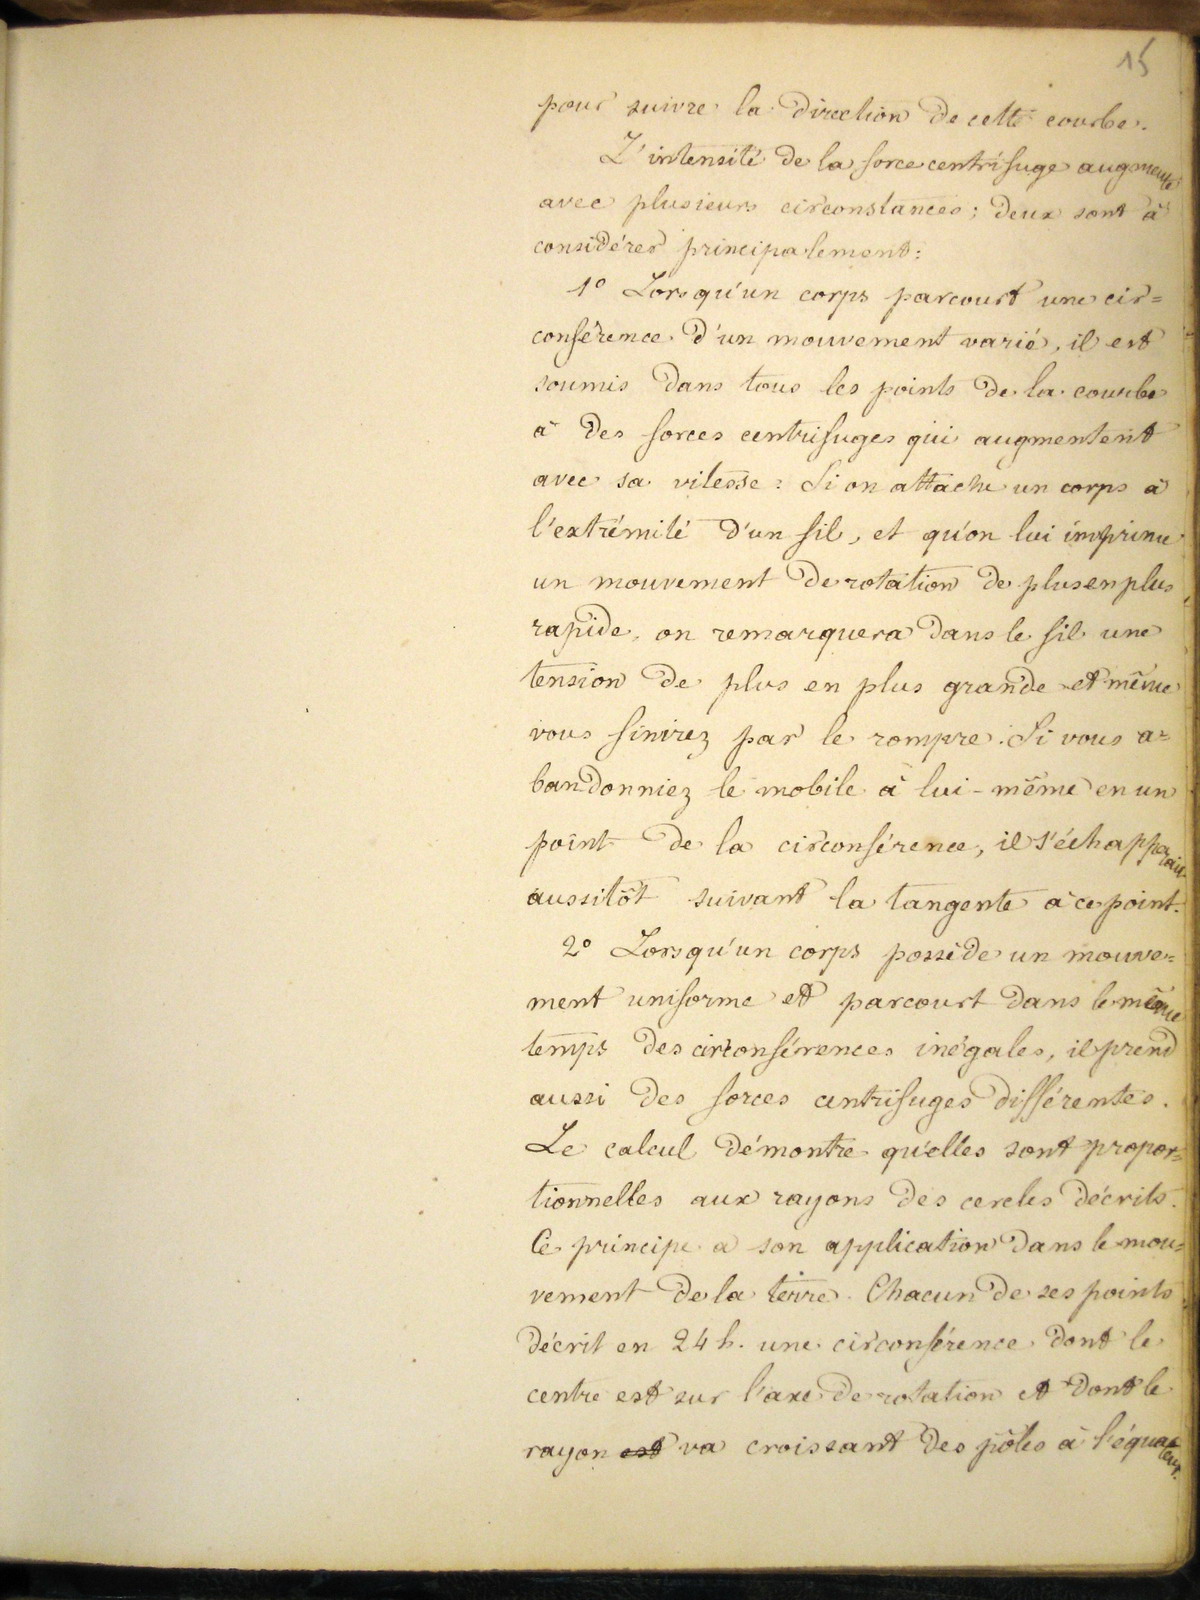 15
pour suivre la direction de cette courbe.
L'intensité de la force centrifuge augmente
avec plusieurs circonstances; deux sont à
considérer principalement:
1° Lorsqu'un corps parcourt une cir=
conférence d'un mouvement varié, il est
soumis dans tous les points de la courbe
à des forces centrifuges qui augmentent
avec sa vitesse: Si on attache un corps à
l'extrémité d'un fil, et qu'on lui imprime
un mouvement de rotation de plus en plus
rapide, on remarquera dans le fil une
tension de plus en plus grande et même
vous finirez par le rompre. Si vous a=
bandonniez le mobile à lui-même en un
point de la circonférence, il s'échapperait
aussitôt suivant la tangente à ce point.
2° Lorsqu'un corps possède un mouve=
ment uniforme et parcourt dans le même
temps des circonférences inégales, il prend
aussi des forces centrifuges différentes.
Le calcul démontre qu'elles sont propor=
tionnelles aux rayons des cercles décrits.
Ce principe a son application dans le mou=
vement de la terre. Chacun de ses points
décrit en 24 h. une circonférence dont le
centre est sur l'axe de rotation et dont le
rayon est va croissant des pôles à l'équateur.